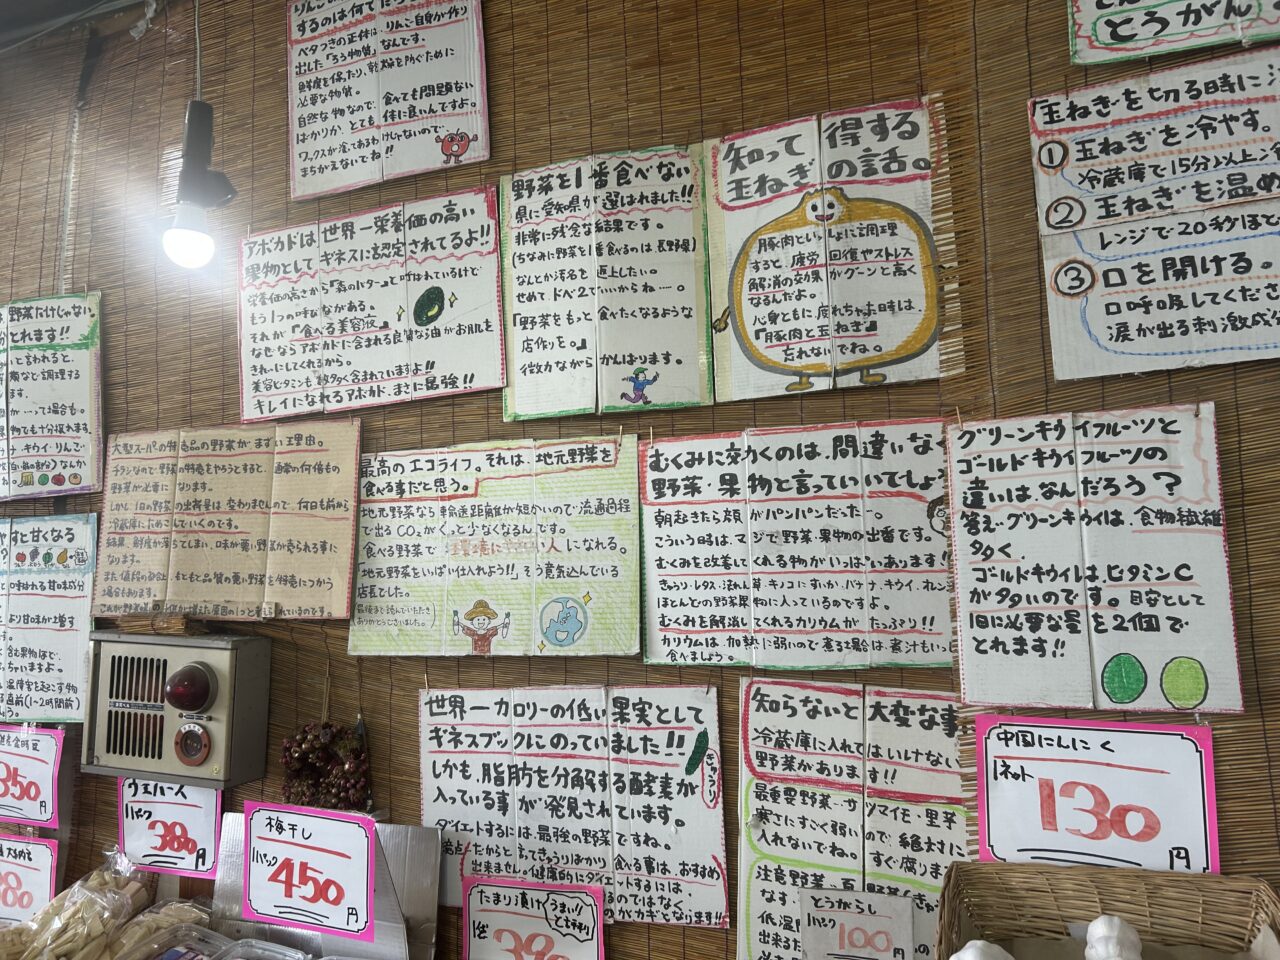 するのは何で
ベタつきの正体は、りんご自身が作り
出した「ろう物質」なんです。
鮮度を保ったり、乾燥を防ぐために
必要な物質。
自然な物なので、食べても問題ない
ばかりか、とても体に良いんですよ。
ワックスが塗ってあるわけじゃないので、
まちがえないでね!!
アボカドは世界一栄養価の高い
果物としてギネスに認定されてるよ!!
栄養価の高さから「森のバター」と呼ばれているけど
もう1つの呼び名がある。
それが『食べる美容液』
なぜならアボカドに含まれる良質な油がお肌を
きれいにしてくれるから。
美容ビタミンも数多く含まれていますよ!!
キレイになれるアボカド、まさに最強!!
野菜を1番食べない
県に愛知県が選ばれました!!
非常に残念な結果です。
(ちなみに野菜を1番食べるのは、長野県)
なんとか汚名を返上したい。
せめて、ドベ2でいいからね……。
『野菜をもっと食べたくなるような
店作りを。』
微力ながらがんばります。
知って得する
玉ねぎの話。
豚肉といっしょに調理
すると、疲労回復やストレス
解消の効果がグーンと高く
なるんだよ。
心身ともに疲れちゃった時は、
『豚肉と玉ねぎ』
忘れないでね。
とうがん
玉ねぎを切る時に
① 玉ねぎを冷やす。
冷蔵庫で15分以上
② 玉ねぎを温め
レンジで20秒ほど
③ 口を開ける。
口呼吸してくださ
涙が出る刺激成分
野菜だけじゃない
とれます!!
と言われると、
類などで調理する
ます。
が…って場合も。
物でも十分採れます。
キウイ・りんご
なんか
大型スーパーの特売品の野菜がまずい理由。
チラシなので野菜の特売をやろうとすると、通常の何倍もの
野菜が必要になります。
しかし1日の野菜の出荷量は変わりませんので、何日も前から
冷蔵庫にためこんでいくのです。
結果、鮮度が落ちてしまい、味が悪い野菜が売られる事に
なります。
また値段の都合上、もともと品質の悪い野菜を特売につかう
場合もあります。
最高のエコライフ。それは、地元野菜を
食べる事だと思う。
地元野菜なら輸送距離が短かいので、流通過程
で出るCO₂がぐっと少なくなるんです。
食べる野菜で環境に優しい人になれる。
「地元野菜をいっぱい仕入れよう!!」そう意気込んでいる
店長でした。
最後まで読んでいただき
ありがとうございました。
むくみに効くのは、間違いなく
野菜・果物と言っていいでしょ
朝起きたら顔がパンパンだった…。
こういう時は、マジで野菜・果物の出番です。
むくみを改善してくれる物がいっぱいあります!!
きゅうり・レタス・ほうれん草・キノコにすいか、バナナ、キウイ、オレン
ほとんどの野菜果物に入っているのですよ。
むくみを解消してくれるカリウムがたっぷり!!
カリウムは、加熱に弱いので煮る場合は、煮汁もいっ
食べましょう。
グリーンキウイフルーツと
ゴールドキウイフルーツの
違いは、なんだろう?
答え…グリーンキウイは、食物繊維
多く、
ゴールドキウイは、ビタミンC
が多いのです。目安として
1日に必要な量を2個で
とれます!!
すと甘くなる
世界一カロリーの低い果実として
ギネスブックにのっていました!!
きゅうり
しかも、脂肪を分解する酵素が
入っている事が発見されています。
ダイエットするには、最強の野菜ですね。
だからと言ってきゅうりばかり食べる事は、おすすめ
出来ません。健康的にダイエットするには
のではなく
カギとなります!!
知らないと大変な事
冷蔵庫に入れてはいけない
野菜があります!!
最重要野菜…サツマイモ・里芋
寒さにすごく弱いので、絶対に
入れないでね。すぐ腐ります
注意野菜…
なす、
低温
出来るだ
中国にんにく
1ネット
130円
350円
ウエハース
1パック
380円
梅干し
1パック
450円
たまり漬け
うまい!!
とうがらし
1パック
100円